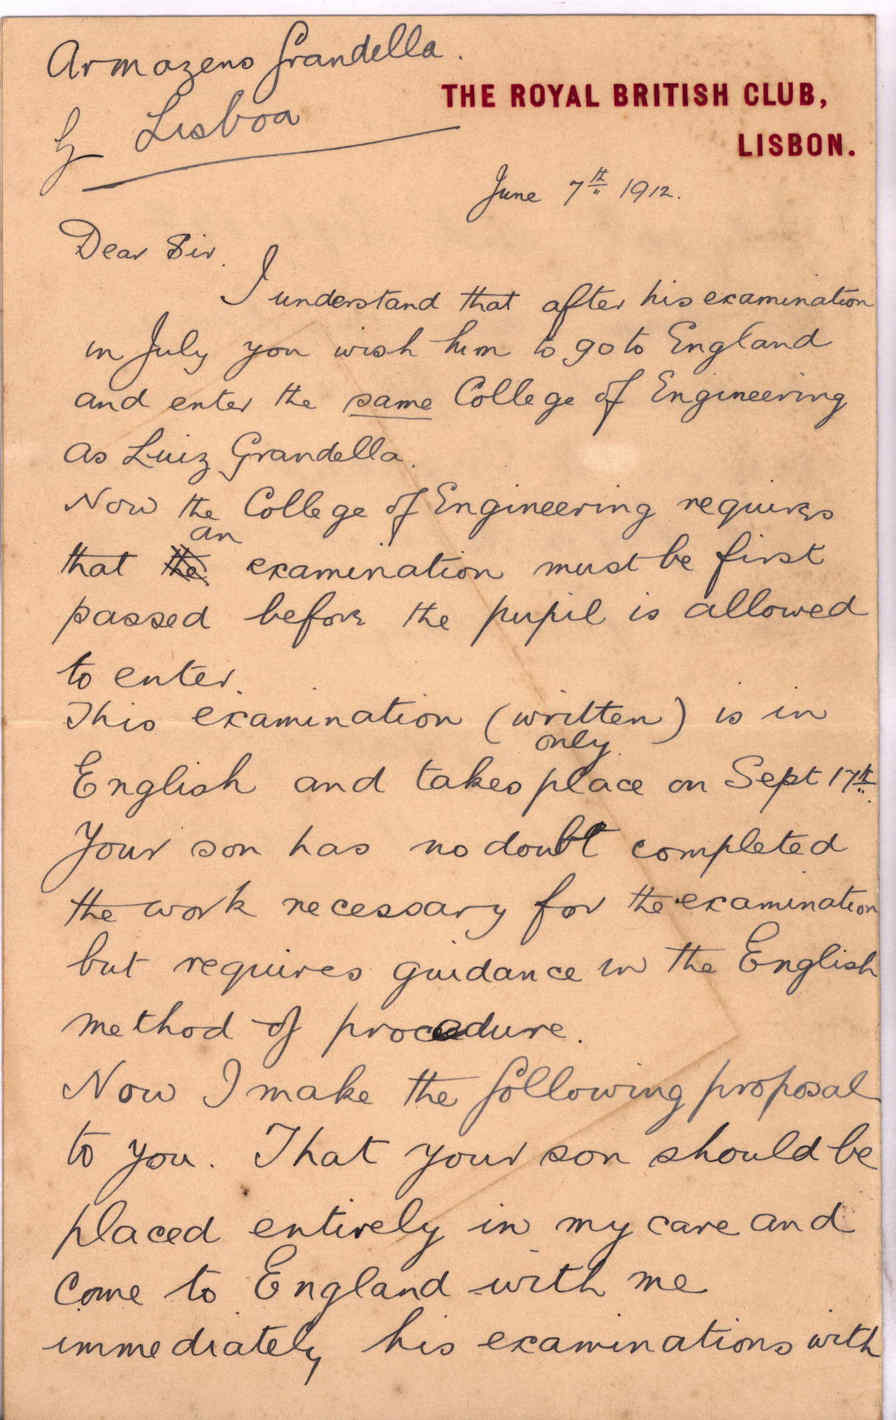 Armazens Grandella.
Lisboa
THE ROYAL BRITISH CLUB,
LISBON.
June 7th 1912.
Dear Sir.
I understand that after his examination
in July you wish him to go to England
and enter the same College of Engineering
as Luiz Grandella.
Now the College of Engineering requires
an
that the examination must be first
passed before the pupil is allowed
to enter.
This examination (written) is in
only
English and takes place on Sept 17th.
Your son has no doubt completed
the work necessary for the examination
but requires guidance in the English
method of procedure.
Now I make the following proposal
to you. That your son should be
placed entirely in my care and
come to England with me
immediately his examinations with